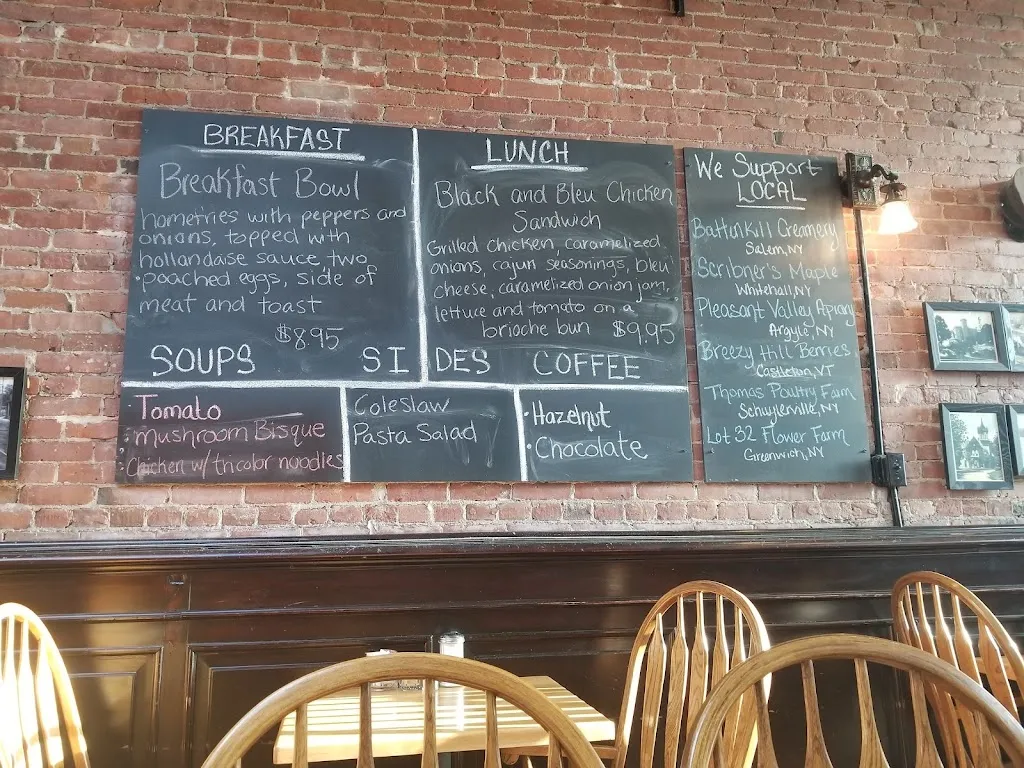 BREAKFAST
Breakfast Bowl
homefries with peppers and
onions, topped with
hollandaise sauce two
poached eggs, side of
meat and toast
$8.95
LUNCH
Black and Bleu Chicken
Sandwich
Grilled chicken caramelized
onions, cajun seasonings, bleu
cheese, caramelized onion jam,
lettuce and tomato on a
brioche bun $9.95
SOUPS
• Tomato
• mushroom Bisque
• Chicken w/ tricolor noodles
SIDES
Coleslaw
Pasta Salad
COFFEE
• Hazelnut
• Chocolate
We Support
LOCAL
Battenkill Creamery
Salem, NY
Scribner's Maple
Whitehall, NY
Pleasant Valley Apiary
Argyle, NY
Breezy Hill Berries
Castleton, VT
Thomas Poultry Farm
Schuylerville, NY
Lot 32 Flower Farm
Greenwich, NY